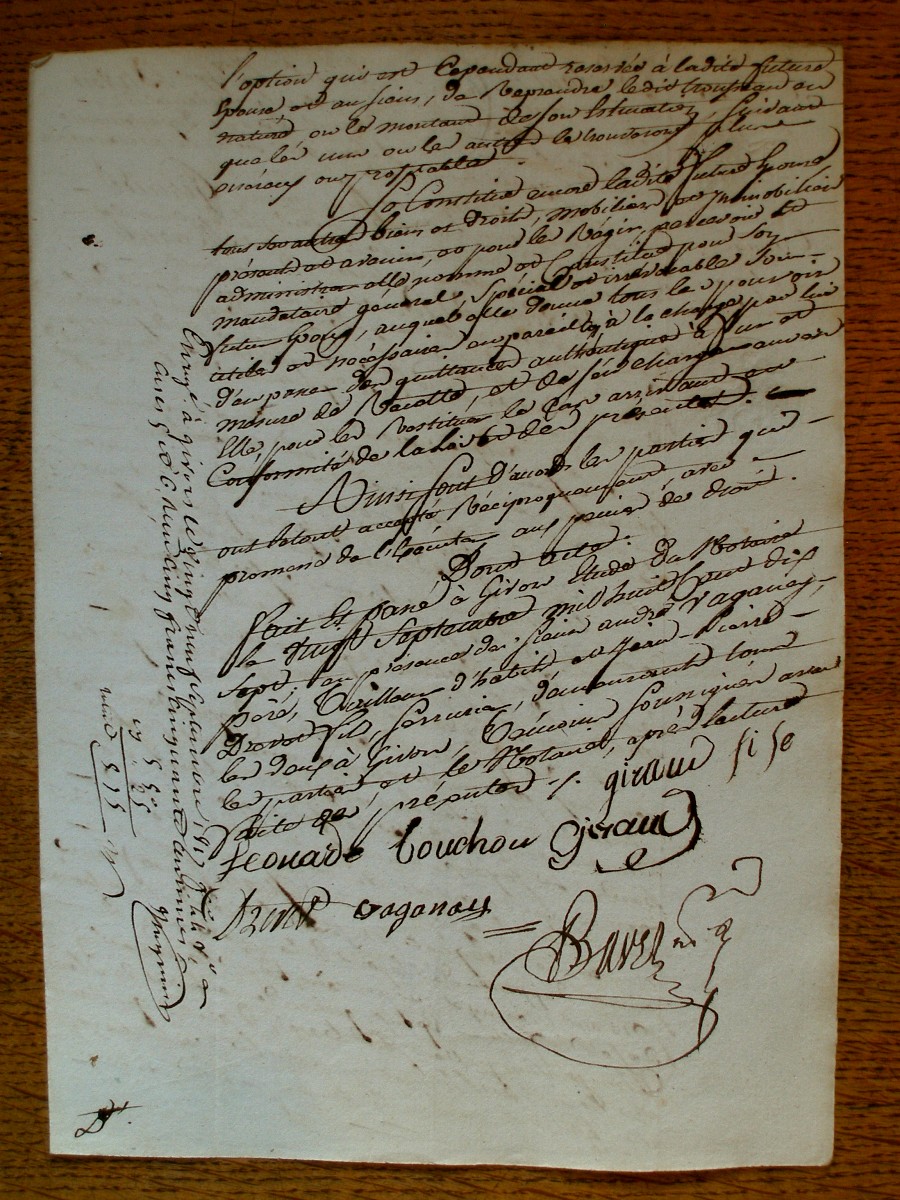 l'option qui est Cependant reservée à ladite future
Epouse et aux siens, de Reprendre ledit trousseau en
nature ou le montant de son Estimation, suivant
que les uns ou les autres le trouveront plus
onéreux ou profitable.
Se Constitue encore ladite future Epouse
tous ses autres biens et droits, mobiliers et Immobiliers
présents et avenir, et pour les Régir, percevoir et
administrer elle nomme et Constitue pour son
mandataire général, spécial et irrévocable son
futur Epoux, auquel elle donne tous les pouvoirs
utiles et nécessaires en pareil cas, à la charge par lui
d'en passer des quittances authentiques à fur et
mesure de Recette, et de s'en charger envers
Elle, pour les Restituer le Cas arrivant en
Conformité de la loi et des présentes.
Ainsi sont d'accord les parties qui
ont le tout accepté Réciproquement, avec
promesse de l'Exécuter aux peines de droit.
Dont acte.
fait Et passé à Givors Etude du Notaire
le Septembre mil huit Cent dix
Sept, en présence de sieurs andré Vaganay,
père, Tailleur d'habits et Jean-Pierre
Drevet fils, serrurier, demeurants tous
les deux à Givors, Témoins soussignés avec
les parties et le Notaire, après lecture
faite des présentes ./.
giraud fi se
Leonarde bouchon Giraud
Drevet vaganay
Enregé à givors le vingt neuf septembre 1817
Cases 5 et 6, Reçu Cinq francs Cinquante Centimes
5
50
55